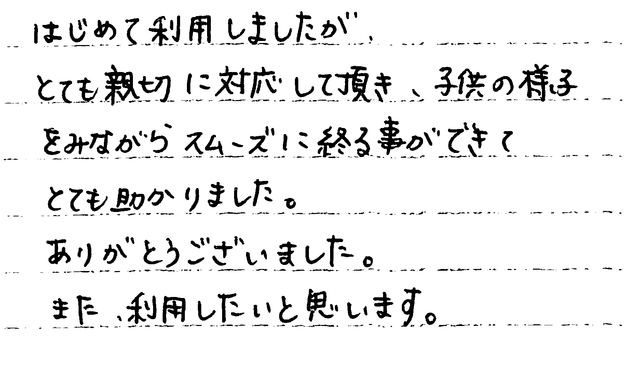 はじめて利用しましたが、
とても親切に対応して頂き、子供の様子
をみながらスムーズに終る事ができて
とても助かりました。
ありがとうございました。
また、利用したいと思います。